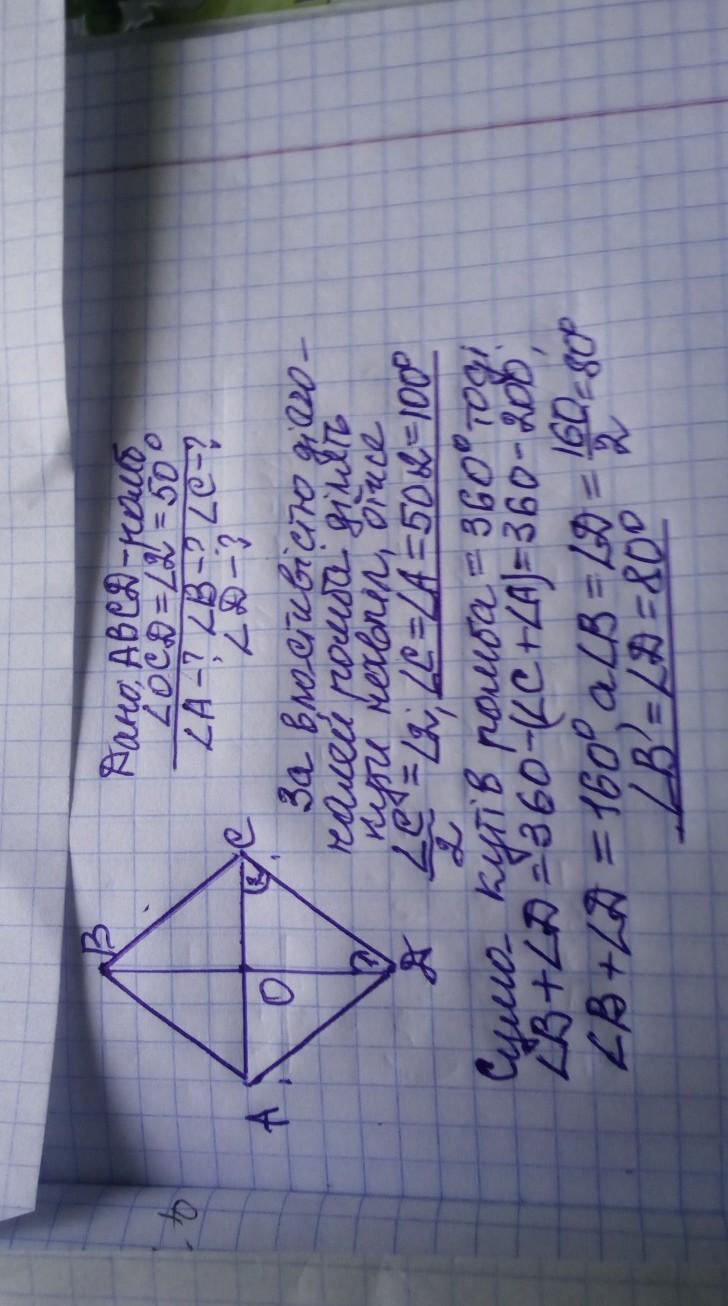 Дано: ABCD-ромб
∠OCD=∠2=50°
∠A-? ∠B-? ∠C-?
∠D-?
B
C
2
O
A
D
За властивістю діаго-
налей ромба ділять
кути навпіл, отже
∠C/2=∠2; ∠C=∠A=50·2=100°
Сума кутів ромба=360° тоді
∠B+∠D=360-(∠C+∠A)=360-200;
∠B+∠D=160° а ∠B=∠D=160/2=80°
∠B=∠D=80°